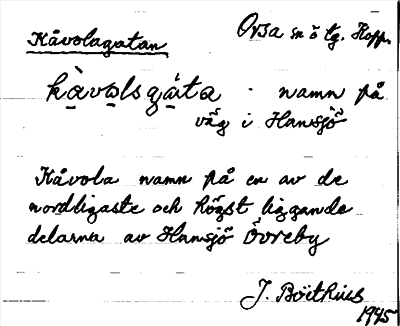 Orsa sn ö tg. Kopp.
Kåvolagatan
kàvǝlsgáta · namn på
väg i Hansjö
Kåvola namn på en av de
nordligaste och högst liggande
delarna av Hansjö Övreby
J. Boëthius
1945